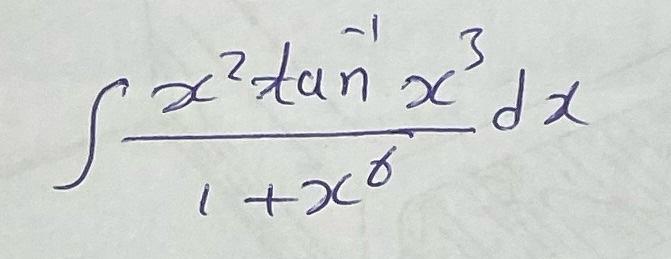 ∫ x² tan⁻¹ x³ / 1 + x⁶ dx